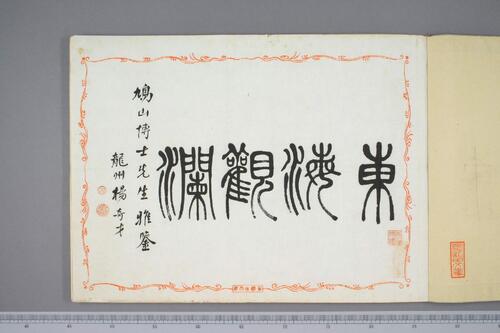 東海觀瀾
鳩山博士先生雅鑒
龍州楊奇才